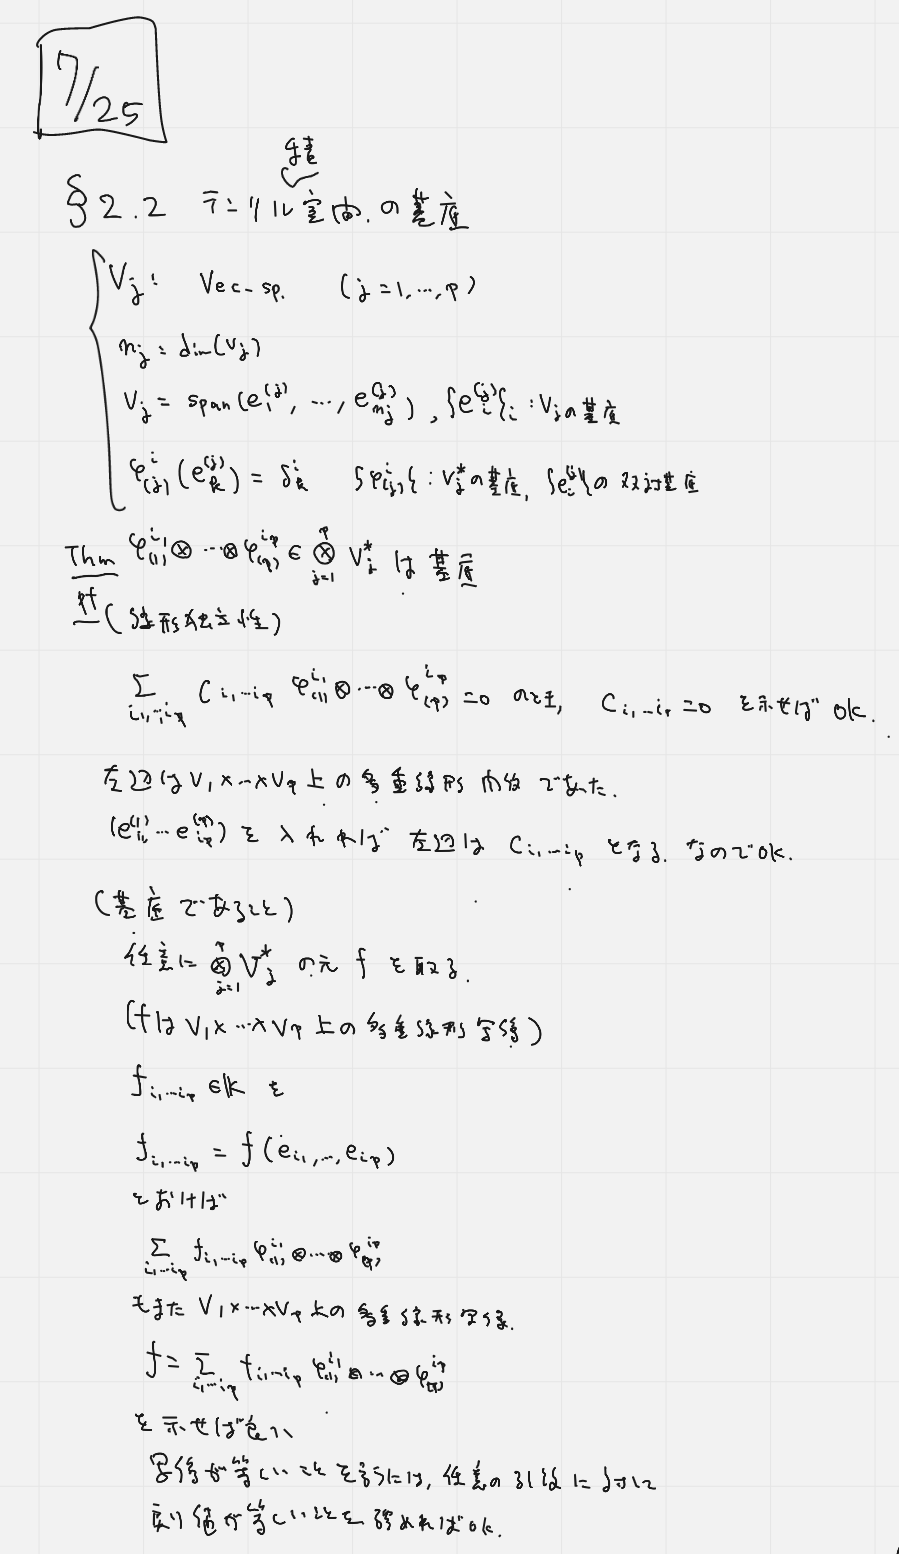 7/25
積
§2.2 テンソル空間の基底
V_j : Vec-sp. (j=1,…,p)
n_j = dim(V_j)
V_j = span(e_1^{(j)}, …, e_{n_j}^{(j)}), {e_i^{(j)}}_i : V_jの基底
φ_{(j)}^i (e_k^{(j)}) = δ_k^i {φ_{(j)}^i} : V_j^*の基底, {e_i^{(j)}}の双対基底
Thm φ_{(1)}^{i_1}⊗…⊗φ_{(p)}^{i_p} ∈ ⊗_{j=1}^p V_j^* は基底
pf (線形独立性)
Σ_{i_1,…,i_p} C_{i_1…i_p} φ_{(1)}^{i_1}⊗…⊗φ_{(p)}^{i_p} = 0 のとき, C_{i_1…i_p} = 0 を示せば ok.
左辺は V_1×…×V_p 上の多重線形 であった.
(e_{i_1}^{(1)} … e_{i_p}^{(p)}) を 入れれば 左辺は C_{i_1…i_p} となる. なのでok.
(基底であること)
任意に ⊗_{j=1}^p V_j^* の元 f を取る.
(fは V_1×…×V_p 上の多重線形写像)
f_{i_1…i_p} ∈ 𝕂 を
f_{i_1…i_p} = f(e_{i_1},…,e_{i_p})
とおけば
Σ_{i_1…i_p} f_{i_1…i_p} φ_{(1)}^{i_1}⊗…⊗φ_{(p)}^{i_p}
もまた V_1×…×V_p 上の 多重線形写像.
f = Σ_{i_1…i_p} f_{i_1…i_p} φ_{(1)}^{i_1}⊗…⊗φ_{(p)}^{i_p}
を示せば良い
写像が等しいことを言うには, 任意の引数に対して
戻り値が等しいことを確めればok.